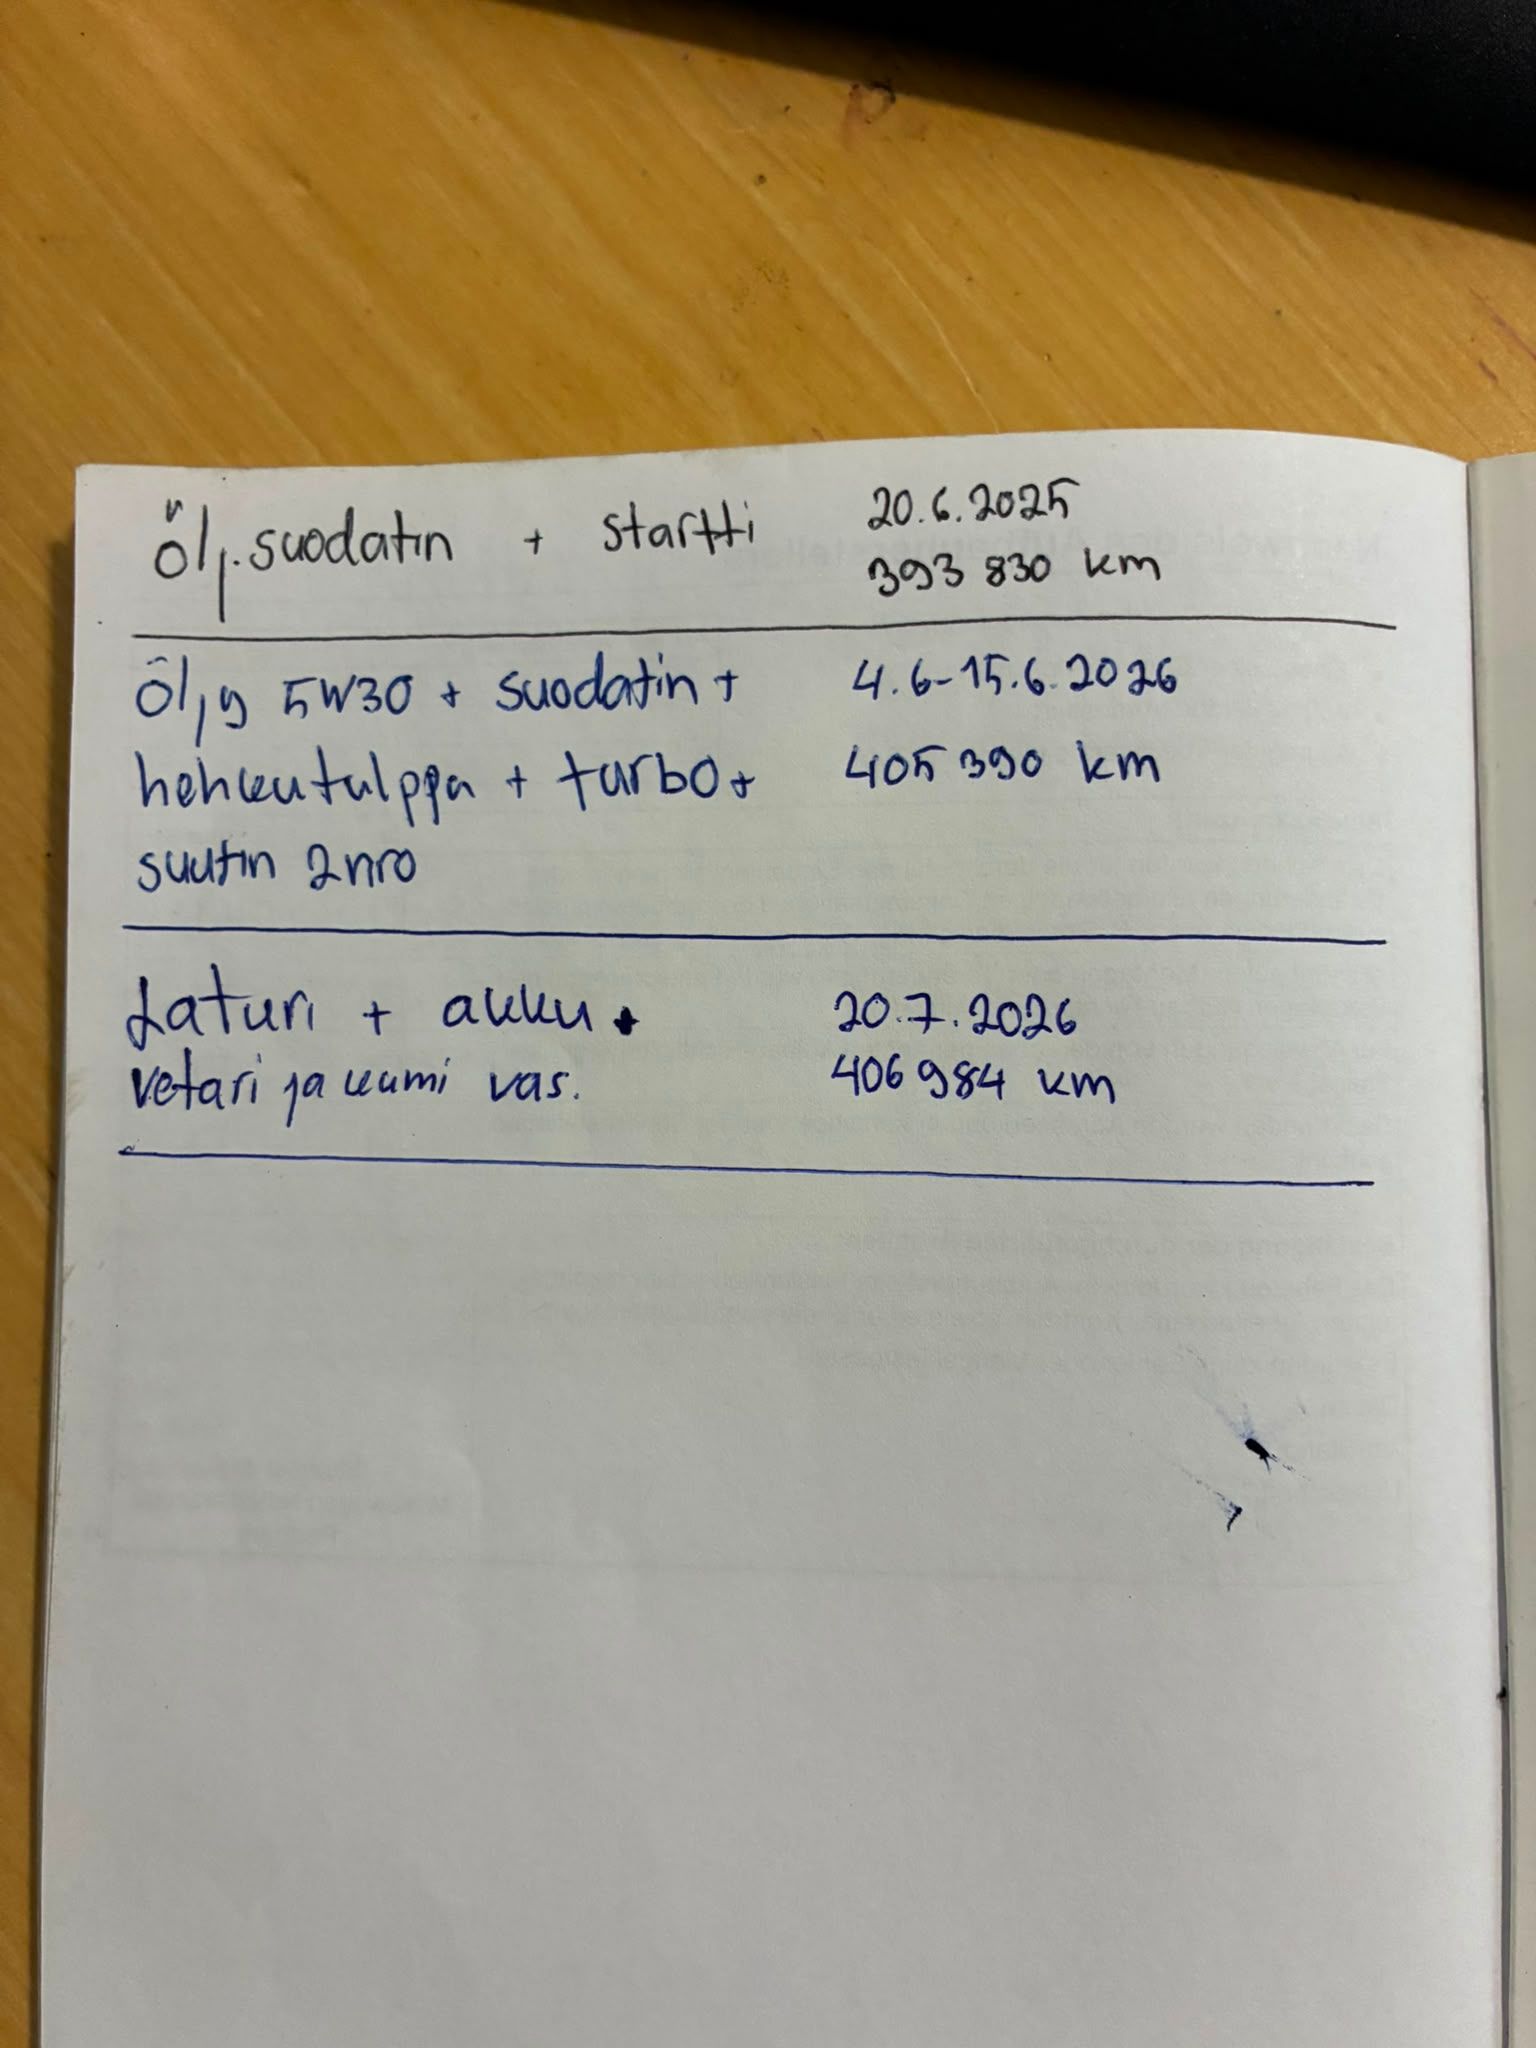 Ölj. suodatin + startti 20.6.2025
393 830 km
Öljy 5W30 + suodatin + 4.6-15.6.2026
hehkutulppa + turbo + 405 390 km
suutin 2nro
Laturi + akku + 20.7.2026
vetari ja kumi vas. 406 984 km